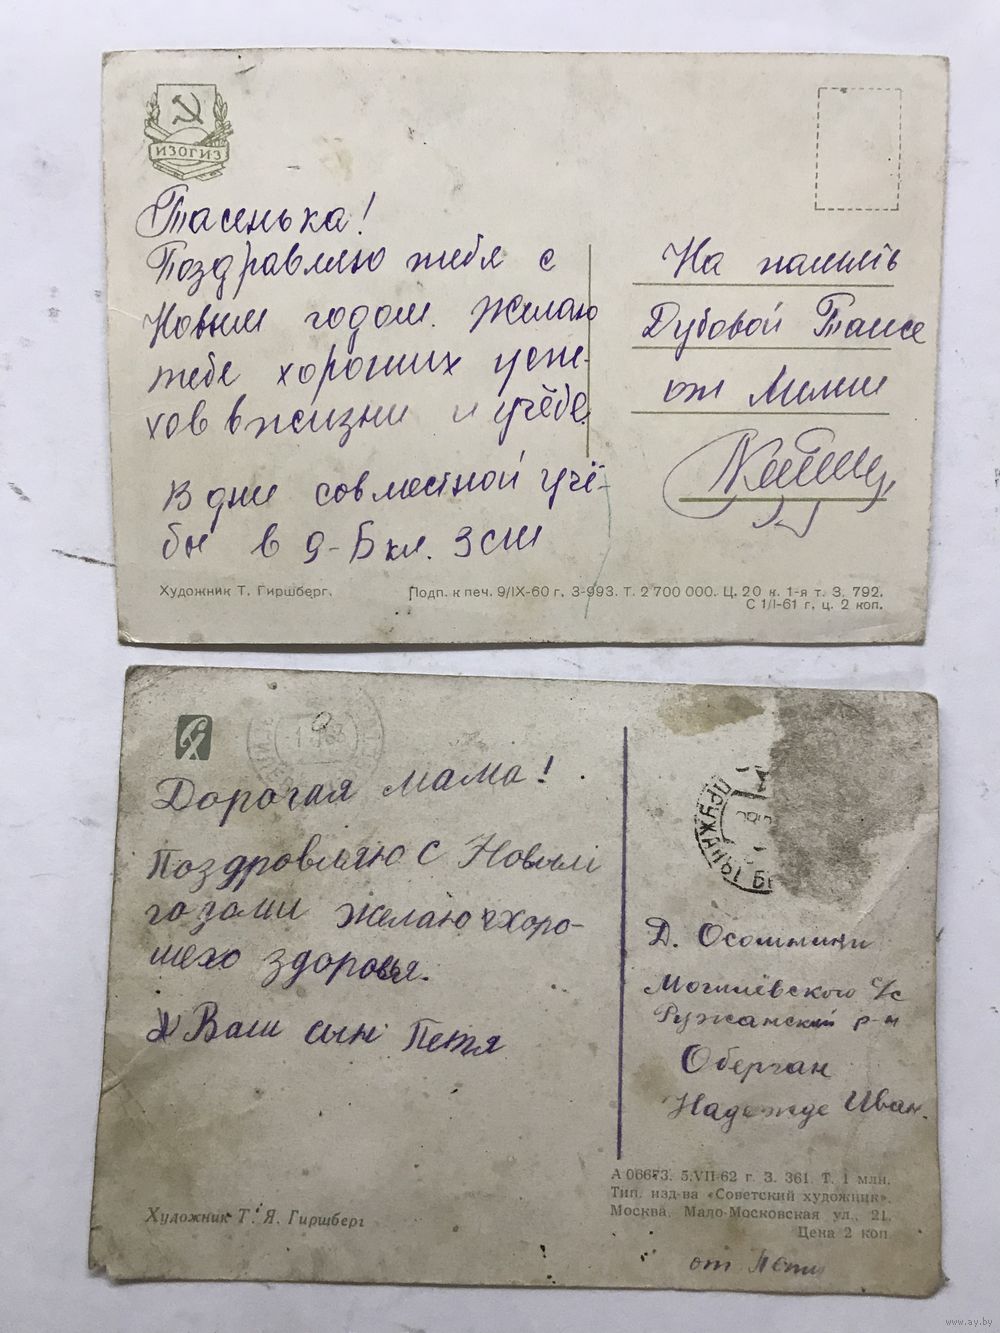 ИЗОГИЗ
Тасенька!
Поздравляю тебя с
Новым годом. Желаю
тебе хороших успе-
хов в жизни и учёбе.
В дни совместной учё-
бы в 9-Б кл. ЗСШ
На память
Дубовой Таисе
от Лилии
Художник Т. Гиршберг.
Подп. к печ. 9/IX-60 г. З-993. Т. 2 700 000. Ц. 20 к. 1-я т. З. 792.
С 1/I-61 г. ц. 2 коп.
СХ
Дорогая мама!
Поздровляю с Новым
годоми желаю хоро-
шехо здоровья.
Ваш сын Петя
РУЖАНЫ
Д. Осошники
Могилёвского с/с
Ружанский р-н
Оберган
Надежде Иван.
А 06673. 5.VII-62 г. З. 361. Т. 1 млн.
Тип. изд-ва «Советский художник».
Москва, Мало-Московская ул., 21.
Цена 2 коп
Художник Т. Я. Гиршберг
от Пети
www.ay.by